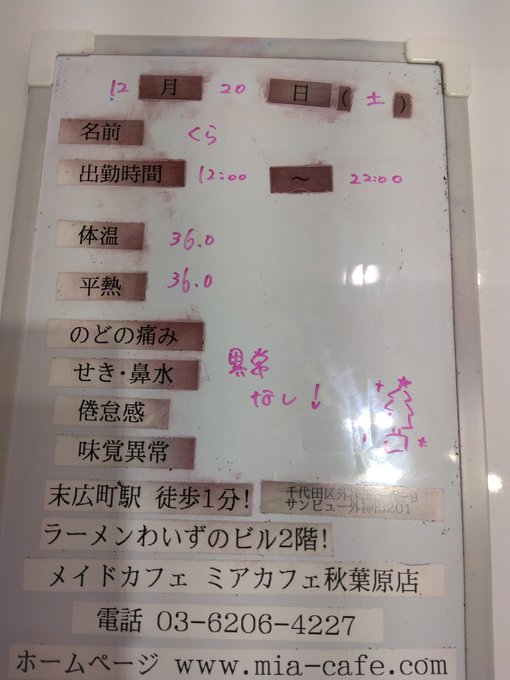 12月20日(土)
名前 くら
出勤時間 12:00 〜 22:00
体温 36.0
平熱 36.0
のどの痛み
せき・鼻水
倦怠感
味覚異常
異常
なし!
末広町駅 徒歩1分!
千代田区外神田
サンビュー外神田201
ラーメンわいずのビル2階!
メイドカフェ ミアカフェ秋葉原店
電話 03-6206-4227
ホームページ www.mia-cafe.com